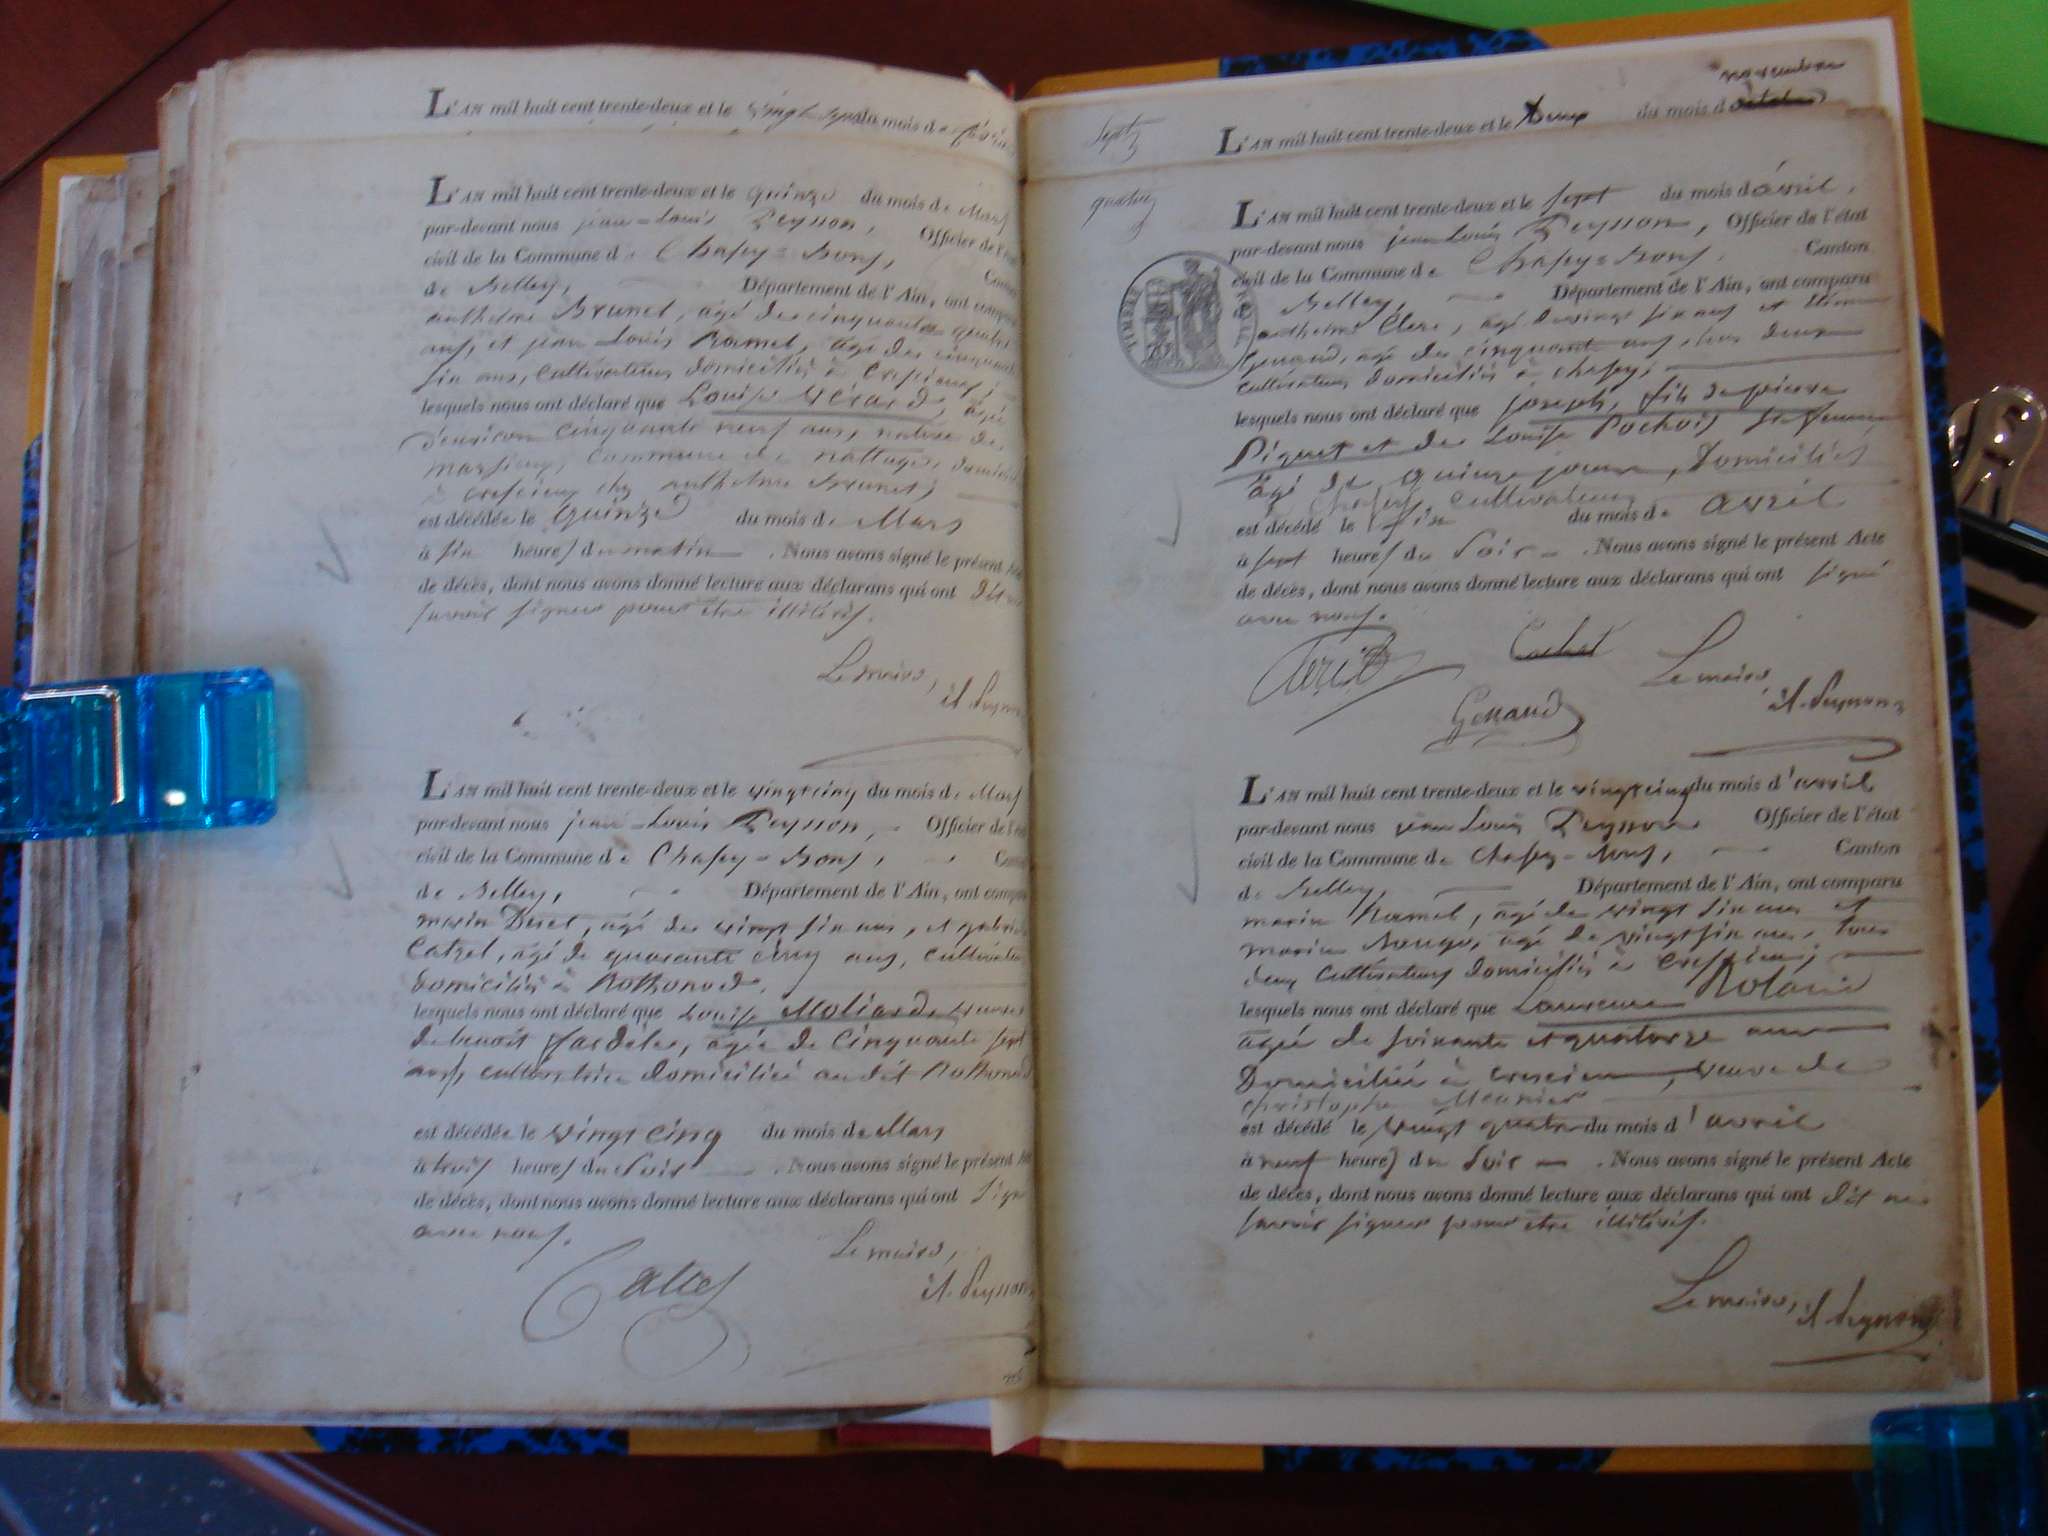 L'AN mil huit cent trente-deux et le vingt du mois de
L'AN mil huit cent trente-deux et le quinze du mois de Mars
par-devant nous jean-Louis Peysson, Officier de l'état
civil de la Commune de Chasey=Bons,
de Belley, Département de l'Ain, ont comparu
anthelme Brunet, agé de cinquante quatre
ans, et jean Louis Ramel, agé de cinquante
six ans, cultivateurs domiciliés à
lesquels nous ont déclaré que Louise agée
d'environ cinquante neuf ans, native de
commune de Nattages,
à chez anthelme Brunet,
est décédée le Quinze du mois de Mars
à six heures du matin . Nous avons signé le présent Acte
de décès, dont nous avons donné lecture aux déclarans qui ont
savoir signer pour être illitérés.
Le maire,
L'AN mil huit cent trente-deux et le vingt cinq du mois de Mars
par-devant nous jean-Louis Peysson, Officier de l'état
civil de la Commune de Chasey=Bons,
de Belley, Département de l'Ain, ont comparu
marin agé de vingt six ans, et
agé de quarante cinq ans,
domiciliés à Rothonod,
lesquels nous ont déclaré que Louise Moliard veuve
de benoit agée de Cinquante sept
ans, cultivatrice domiciliée au dit Rothonod
est décédée le vingt cinq du mois de Mars
à trois heures du soir . Nous avons signé le présent
de décès, dont nous avons donné lecture aux déclarans qui ont signé
avec nous.
Le maire,
sept
L'AN mil huit cent trente-deux et le Deux du mois d novembre
L'AN mil huit cent trente-deux et le sept du mois d'avril,
par-devant nous jean Louis Peysson, Officier de l'état
civil de la Commune de Chasey=Bons. Canton
de Belley, Département de l'Ain, ont comparu
anthelme Clerc, agé de vingt six ans et
Genaud, agé de cinquante ans tous deux
cultivateurs domiciliés à chasey,
lesquels nous ont déclaré que joseph, fils de pierre
Piquet et de Louise Pochois sa femme
agé de quinze jours, Domiciliés
chasey, cultivateurs
est décédé le six du mois de avril
à sept heures du soir . Nous avons signé le présent Acte
de décès, dont nous avons donné lecture aux déclarans qui ont signé
avec nous.
Clerc
Genaud
Le maire,
TIMBRE ROYAL
L'AN mil huit cent trente-deux et le vingt cinq du mois d'avril
par-devant nous jean Louis Peysson Officier de l'état
civil de la Commune de Chasey=Bons, Canton
de Belley, Département de l'Ain, ont comparu
marin Ramel, agé de vingt six ans et
marin agé de vingt six ans, tous
deux cultivateurs domiciliés à
lesquels nous ont déclaré que Laurence
agée de soixante et quatorze ans
Domiciliée à veuve de
christophe Meunier
est décédé le vingt quatre du mois d'avril
à neuf heures du soir . Nous avons signé le présent Acte
de décès, dont nous avons donné lecture aux déclarans qui ont dit ne
savoir signer pour être illitérés.
Le maire,